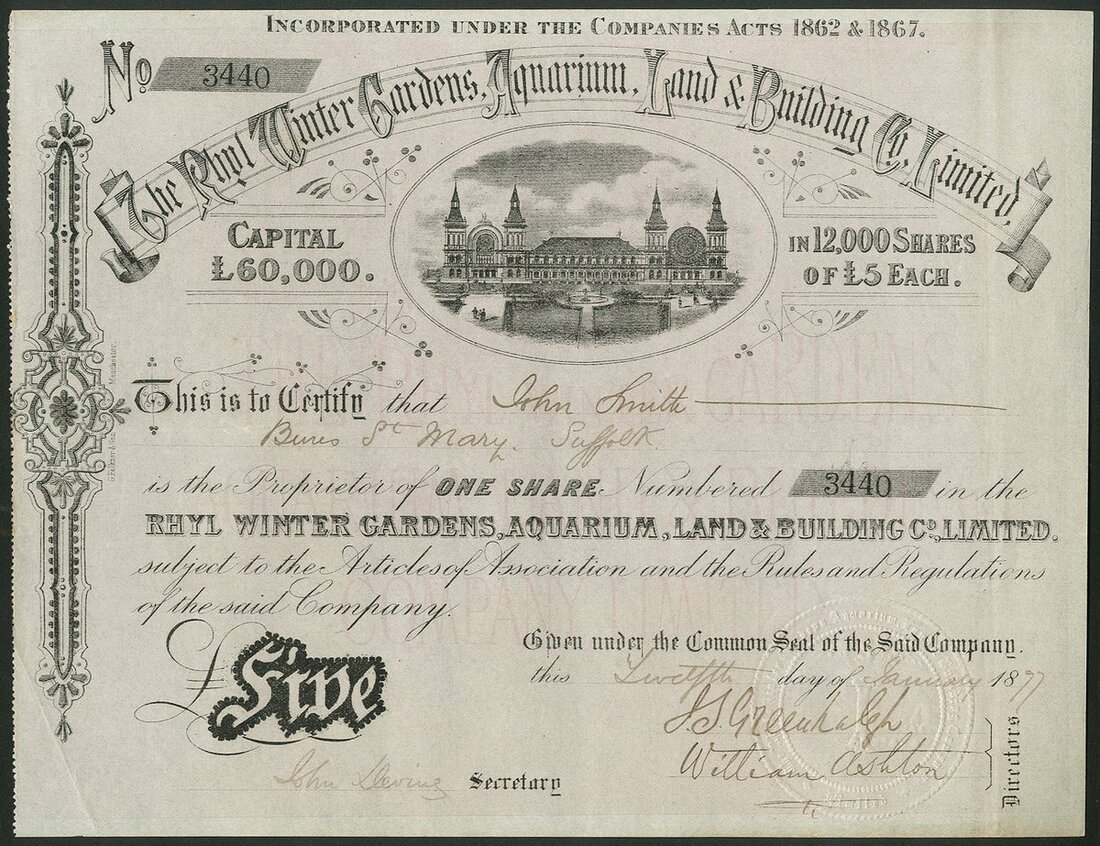 INCORPORATED UNDER THE COMPANIES ACTS 1862 & 1867.
No 3440
The Rhyl Winter Gardens, Aquarium, Land & Building Co. Limited.
CAPITAL
£60,000.
IN 12,000 SHARES
OF £5 EACH.
This is to Certify that John Smith
Bures St Mary. Suffolk
is the Proprietor of ONE SHARE Numbered 3440 in the
RHYL WINTER GARDENS, AQUARIUM, LAND & BUILDING Co, LIMITED.
subject to the Articles of Association and the Rules and Regulations
of the said Company.
£ Five
Given under the Common Seal of the Said Company.
this Twelfth day of January 1877
J.S. Greenhalgh
William Ashton
Directors
John Secretary